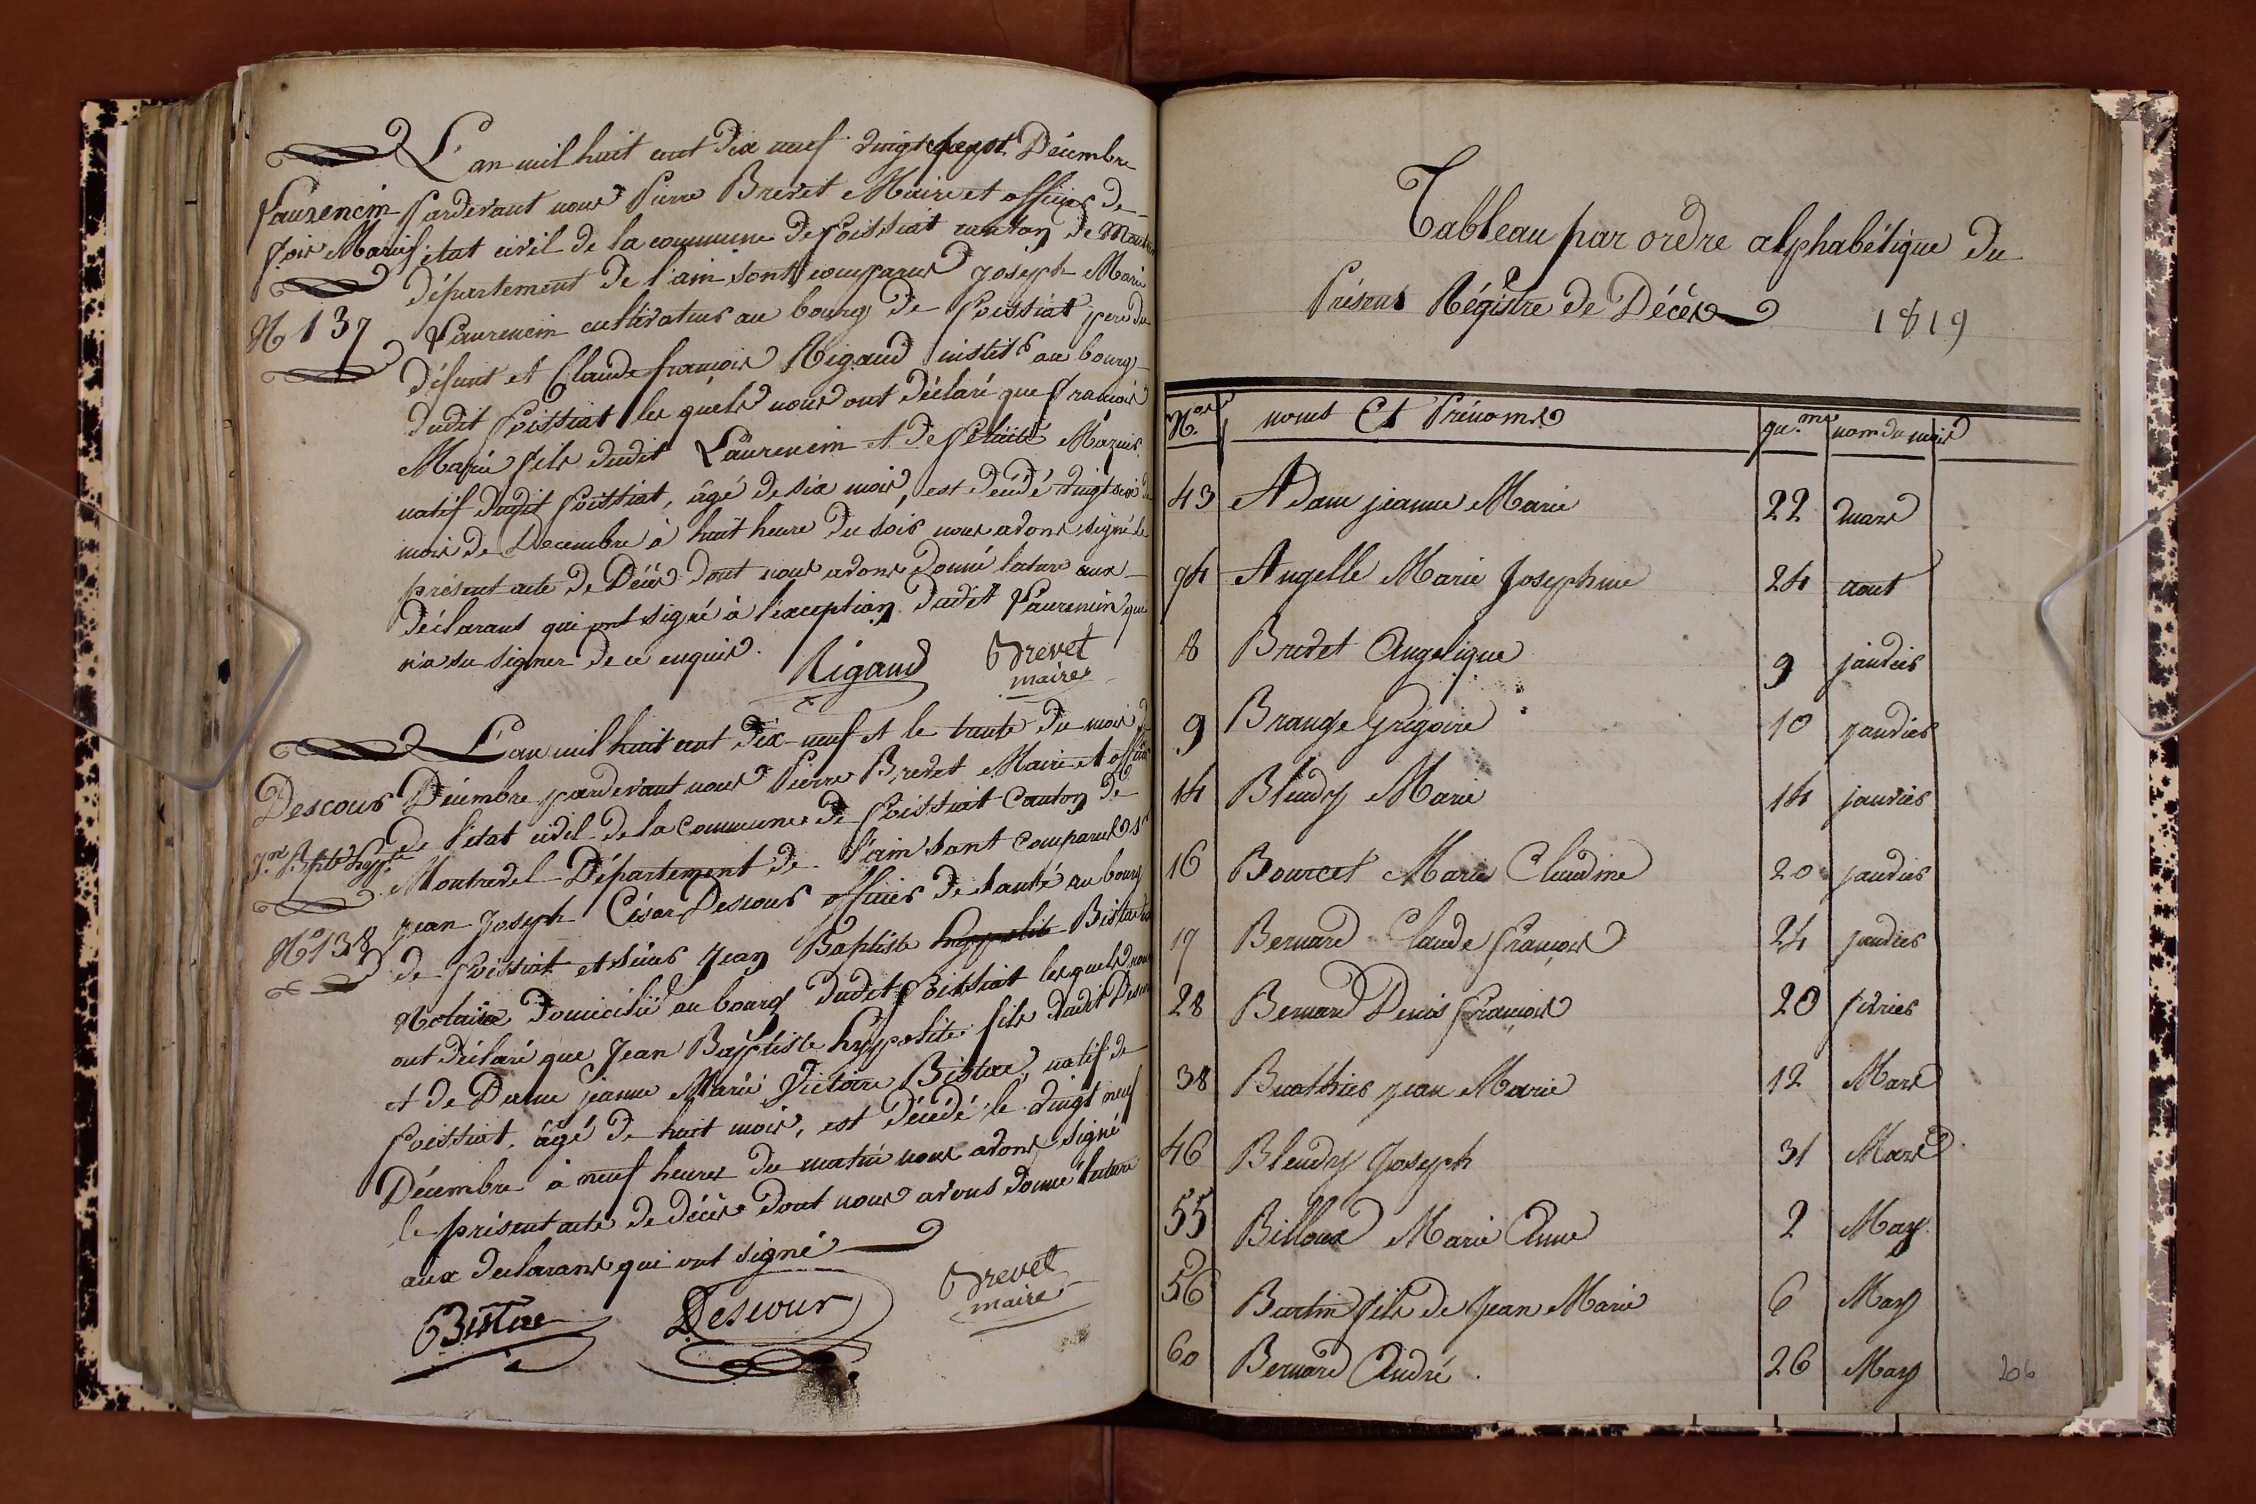 L'an mil huit cent dix neuf vingt sept Décembre
Laurencin pardevant nous Pierre Brevet Maire et officier de
fois Marie état civil de la commune de foissiat canton de
département de l'ain sont comparus joseph Marie
N 137 Laurencin cultivateur au bourg de foissiat pere du
défunt et Claude françois Rigaud instit.r au bourg
dudit foissiat les quels nous ont déclaré que françois
Marie fils dudit Laurencin et de
natif dudit foissiat, âgé de six mois, est décédé vingt six de
mois de Décembre à huit heure du soir nous avons signé le
présent acte de Décès dont nous avons donné lature aux
déclarans qui ont signé à l'exception dudit Laurencin que
n'a su signer de ce enquis.
Rigaud Brevet
maire
L'an mil huit cent dix neuf et le trente du mois de
Descours Décembre pardevant nous Pierre Brevet Maire et officier
de l'état civil de la commune de foissiat Canton de
jn Bpte hypp.te Montrevel Département de l'ain sont comparus Sr
jean joseph César Descours officier de santé au bourg
N° 138 de foissiat et sieur jean Baptiste hyppolite Bistac
Notaire Domicilié au bourg dudit foissiat lesquels nous
ont déclaré que Jean Baptiste hyppolite fils dudit Descours
et de Dame jeanne Marie Victoire Bistac, natif de
foissiat, âgé de huit mois, est décédé le vingt neuf
Décembre à neuf heures du matin nous avons signé
le présent acte de décès dont nous avons donné lature
aux declarans qui ont signé
Bistac Descour Brevet
maire
Tableau par ordre alphabétique du
Présent Régistre de Décès 1819
N.os noms Et Prénoms qu.me nom du mois
43 Adam jeanne Marie 22 mars
94 Angelle Marie Josephine 24 aout
8 Brevet Angelique 9 janvier
9 Brange Grégoire 10 janvier
14 Blendy Marie 14 janvier
16 Bourcet Marie Claudine 20 janvier
17 Bernard Claude françois 24 janvier
28 Bernard Denis françois 20 fevrier
38 Buathier jean Marie 12 Mars
46 Blendy Joseph 31 Mars
55 Billoud Marie Anne 2 May
56 Burtin fils de Jean Marie 6 May
60 Bernard André 26 May
206